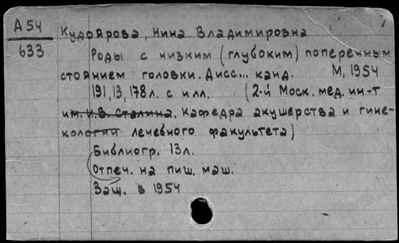 А54
633
Кудоярова, Нина Владимировна
Роды с низким (глубоким) поперечным
стоянием головки. Дисс... канд. М, 1954
191, 13, 178л. с илл. (2-й Моск. мед. ин-т
им. И.В. Сталина. Кафедра акушерства и гине-
кологии лечебного факультета)
Библиогр. 13л.
Отпеч. на пиш. маш.
Защ. в 1954